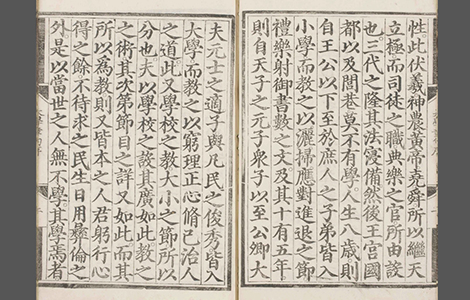 性此伏羲神農黃帝堯舜所以繼天
立極而司徒之職典樂之官所由設
也三代之隆其法寖備然後王宮國
都以及閭巷莫不有學人生八歲則
自王公以下至於庶人之子弟皆入
小學而教之以灑掃應對進退之節
禮樂射御書數之文及其十有五年
則自天子之元子衆子以至公卿大
夫元士之適子與凡民之俊秀皆入
大學而教之以窮理正心脩己治人
之道此又學校之教大小之節所以
分也夫以學校之設其廣如此教之
之術其次第節目之詳又如此而其
所以爲教則又皆本之人君躬行心
得之餘不待求之民生日用彛倫之
外是以當世之人無不學其學焉者